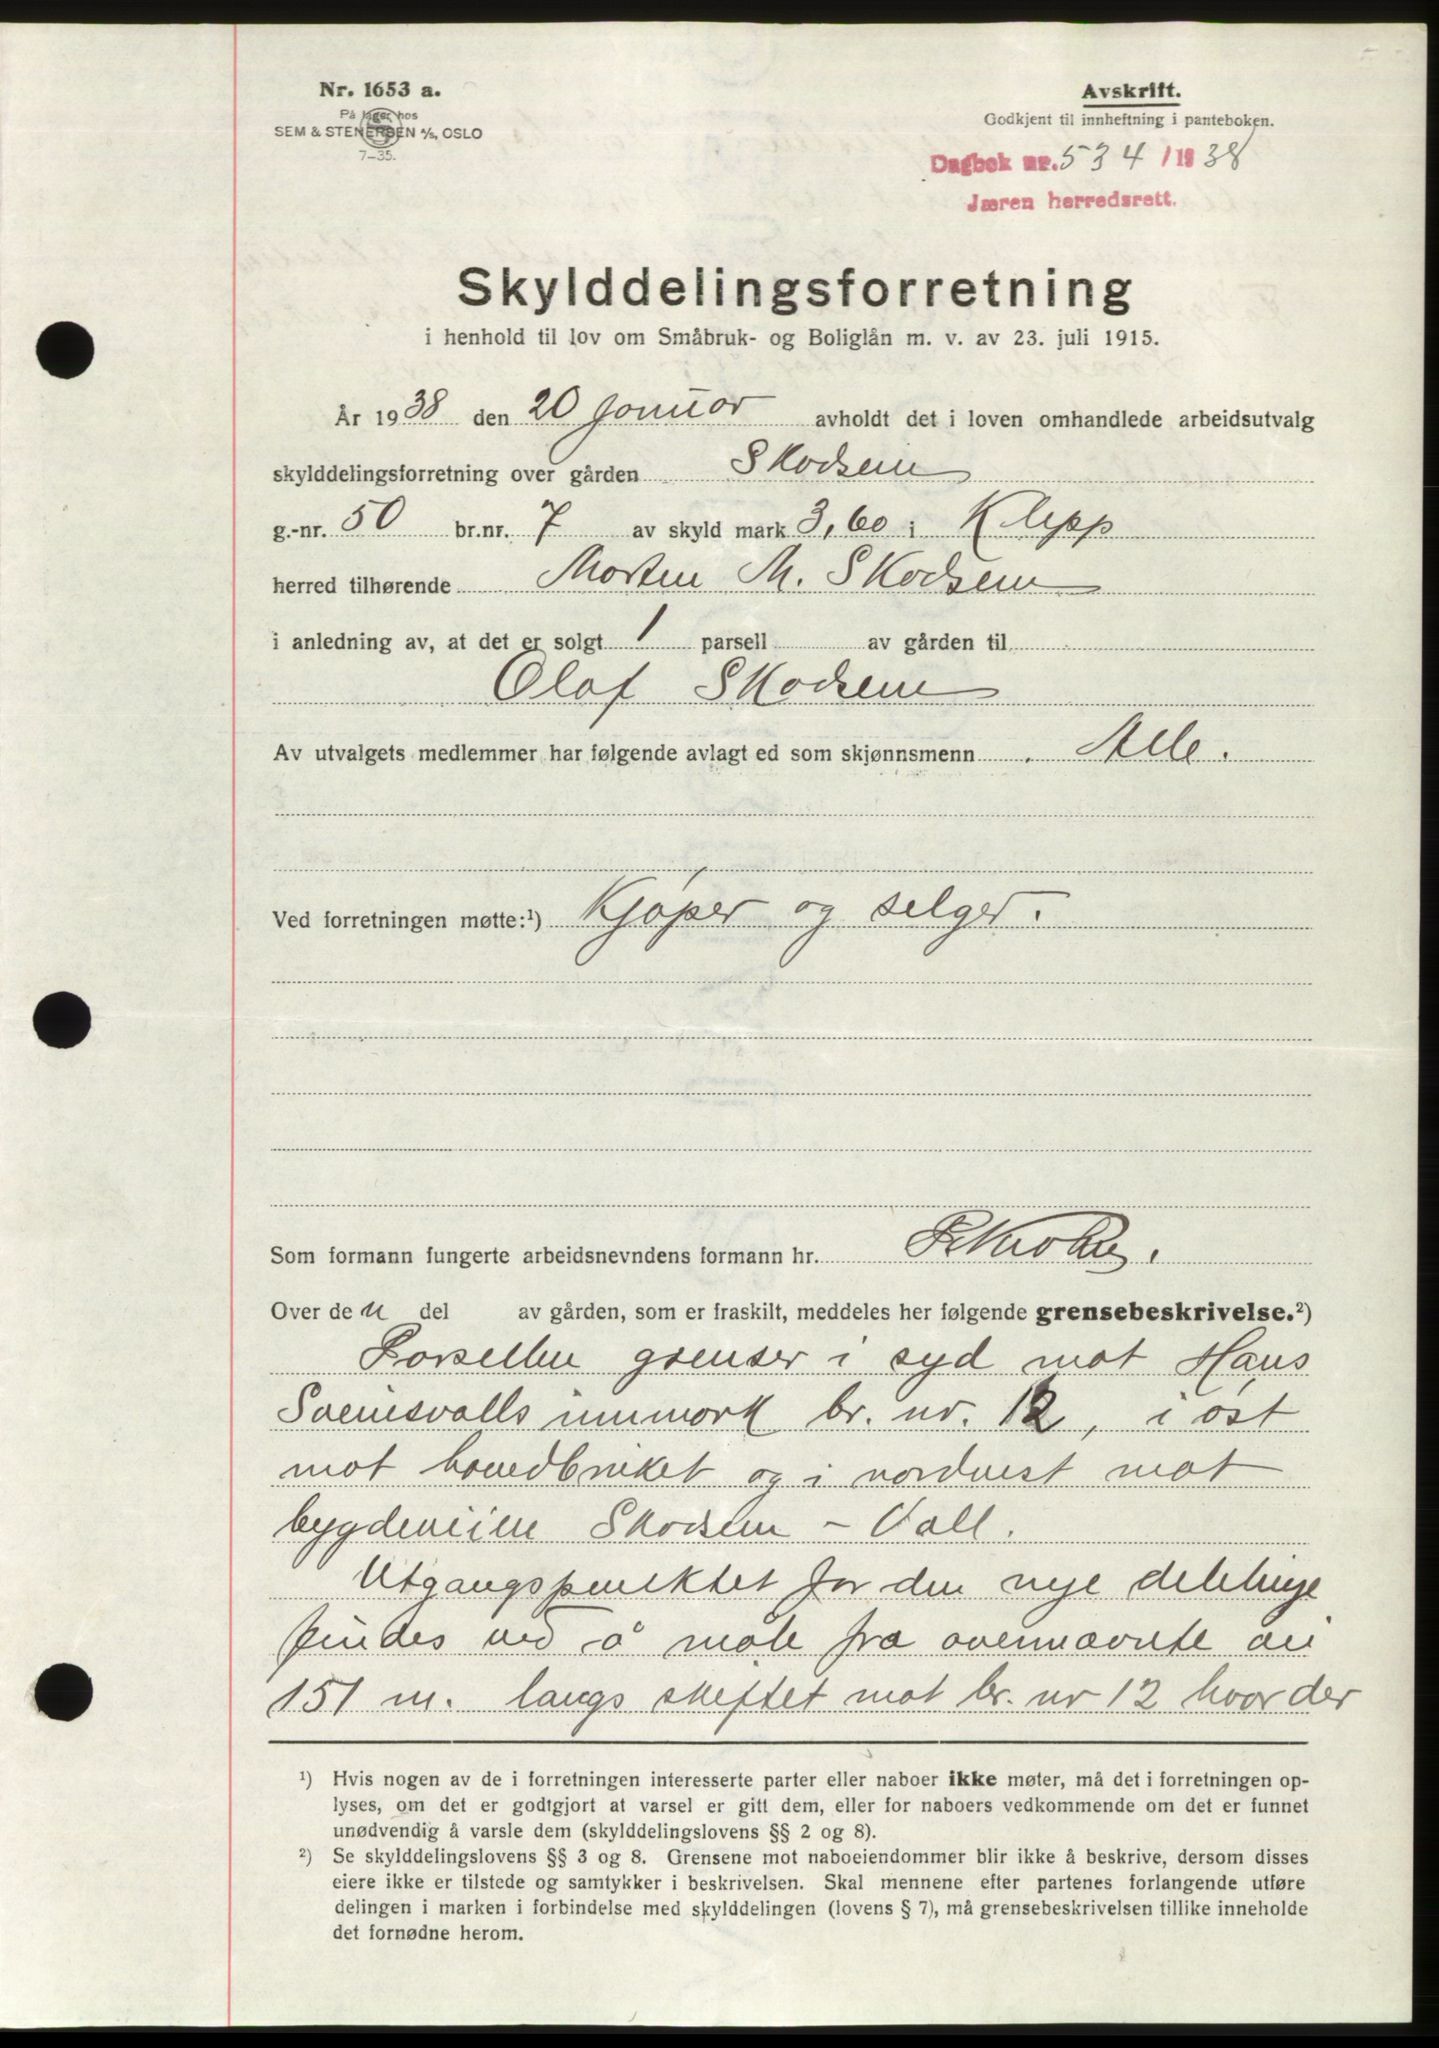 Nr. 1653 a.
På lager hos
SEM & STENERSEN A/S, OSLO
7-35.
Avskrift.
Godkjent til innheftning i panteboken.
Dagbok nr. 534 / 1938
Jæren herredsrett.
Skylddelingsforretning
i henhold til lov om Småbruk- og Boliglån m. v. av 23. juli 1915.
År 1938 den 20 januar avholdt det i loven omhandlede arbeidsutvalg
skylddelingsforretning over gården Skodsem
g.-nr. 50 br.nr. 7 av skyld mark 3,60 i Klepp
herred tilhørende Morten M. Skodsem
i anledning av, at det er solgt 1 parsell av gården til
Olaf Skodsem
Av utvalgets medlemmer har følgende avlagt ed som skjønnsmenn Alle.
Ved forretningen møtte:¹) Kjøper og selger.
Som formann fungerte arbeidsnevndens formann hr.
Over den del av gården, som er fraskilt, meddeles her følgende grensebeskrivelse.²)
Parsellen grenser i syd mot Hans
innmark br. nr. 12, i øst
mot hovedbruket og i nordvest mot
bygdeveien Skodsem - Vall.
Utgangspunktet for den nye
findes ved å måle fra ovennævnte vei
151 m. langs skiftet mot br. nr 12 hvor der
¹) Hvis nogen av de i forretningen interesserte parter eller naboer ikke møter, må det i forretningen op-
lyses, om det er godtgjort at varsel er gitt dem, eller for naboers vedkommende om det er funnet
unødvendig å varsle dem (skylddelingslovens §§ 2 og 8).
²) Se skylddelingslovens §§ 3 og 8. Grensene mot naboeiendommer blir ikke å beskrive, dersom disses
eiere ikke er tilstede og samtykker i beskrivelsen. Skal mennene efter partenes forlangende utføre
delingen i marken i forbindelse med skylddelingen (lovens § 7), må grensebeskrivelsen tillike inneholde
det fornødne herom.